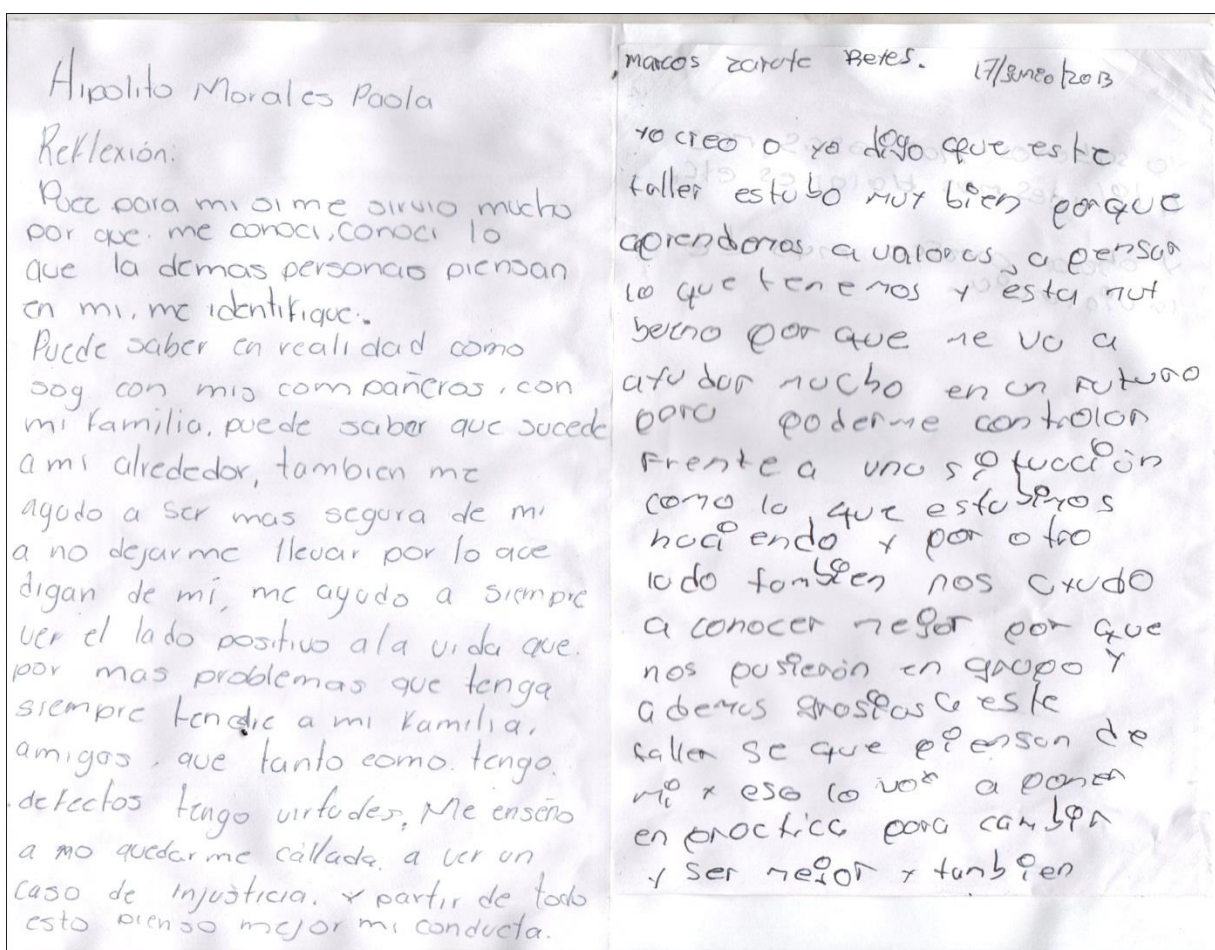 Hipolito Morales Paola
Reflexión:
Puez para mi si me sirvio mucho
por que. me conoci, conoci lo
que la demas personas piensan
en mi, me identifique.
Puede saber en realidad como
soy con mis compañeros, con
mi familia, puede saber que sucede
a mi alrededor, tambien me
ayudo a ser mas segura de mi
a no dejarme llevar por lo que
digan de mi, me ayudo a siempre
ver el lado positivo ala vida que.
por mas problemas que tenga
siempre tendre a mi familia,
amigos, que tanto como. tengo.
defectos tengo virtudes, Me enseño
a no quedarme callada, a ver un
caso de injusticia. y partir de todo
esto pienso mejor mi conducta.
marcos zarate 17/Junio/2013
yo creo o yo digo que este
taller estubo muy bien porque
aprendemos a a pensar
lo que tenemos y esta muy
bueno por que me va a
ayudar mucho en un futuro
para poderme controlar
Frente a una
como lo que estubimos
haciendo y por otro
lado tambien nos ayudo
a conocer mejor por que
nos pusieron en grupo y
ademas a este
taller se que piensan de
mi y eso lo voy a poner
en practica para
y ser mejor y tanbien